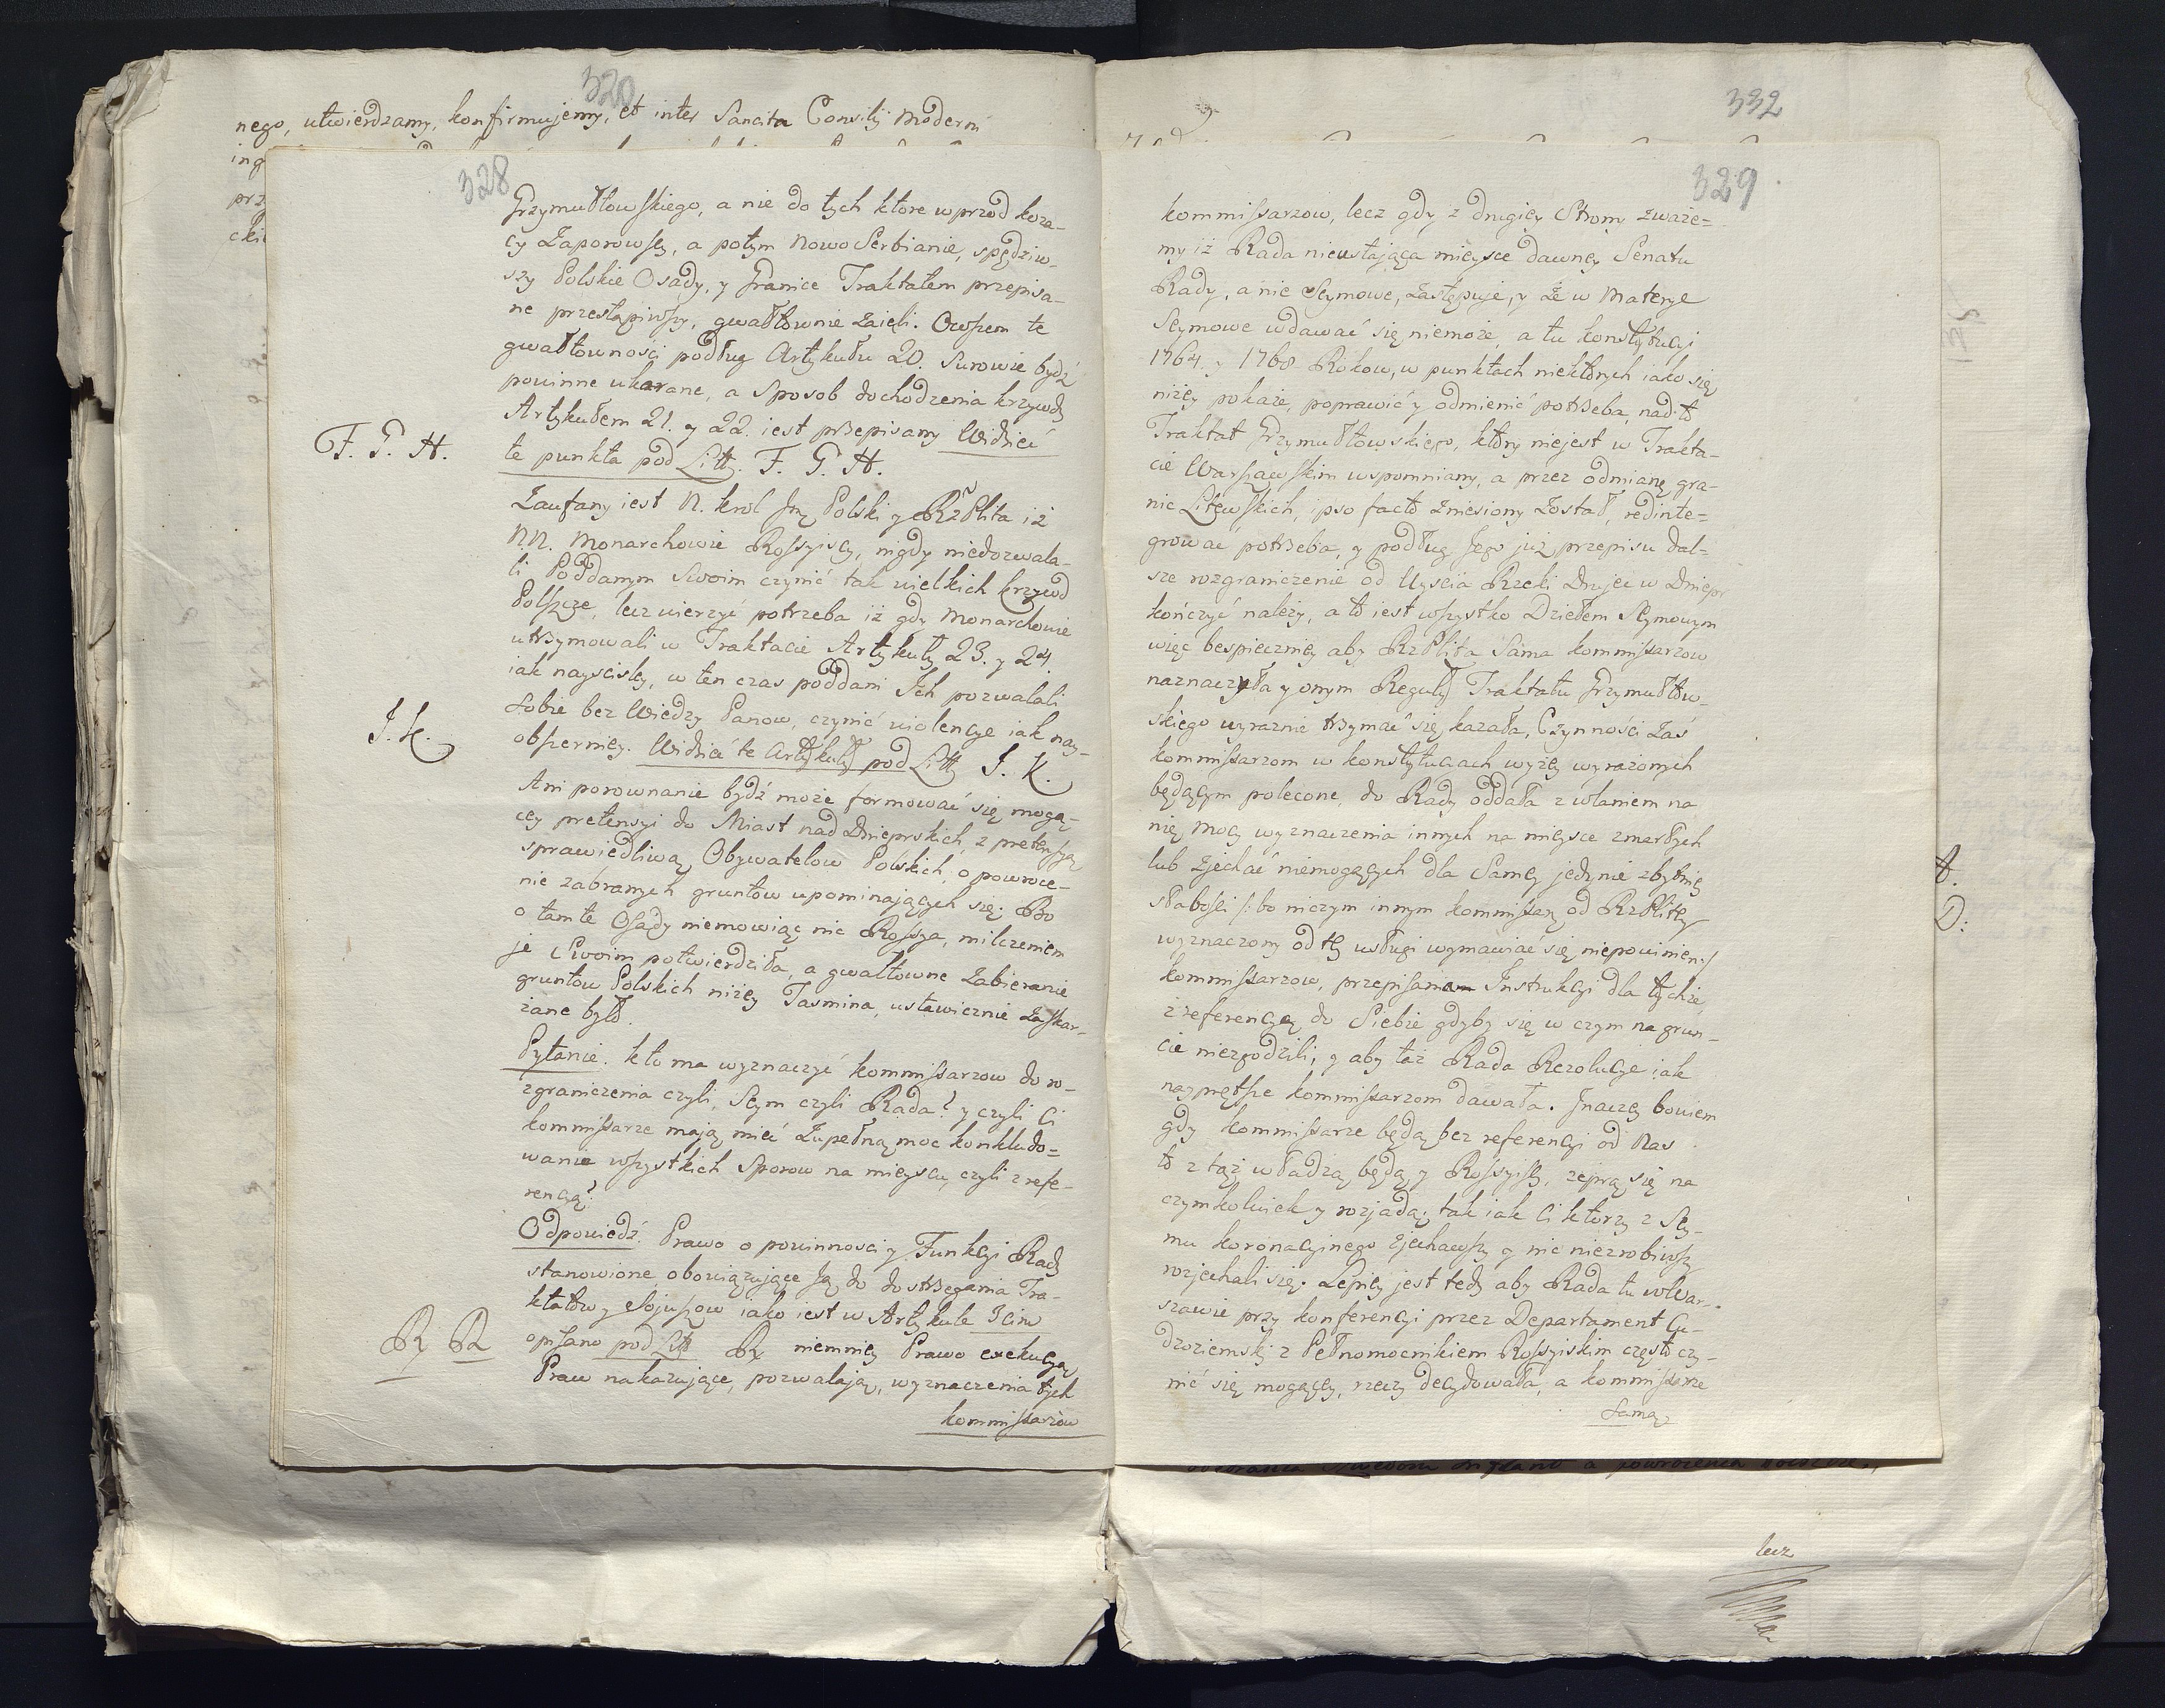 320
nego, utwierdzamy, konfirmujemy, et inter Sancita Consilij moderni
328
Grzymułtowskiego, a nie do tych ktore wprzod koza-
cy Zaporowscy, a potym nowo Serbianie, spędziw-
szy Polskie Osady, y Granice Traktatem przepisa-
ne przestąpiwszy, gwałtownie zaięli. Owszem te
gwałtowności podług Artykułu 20. surowie bydź
powinne ukarane, a sposob dochodzenia krzywdy
Artykułem 21. y 22. iest przepisany Widzieć
F. G. H.
te punkta pod Litt. F. G. H.
Zaufany iest N. krol Jmć Polski y RzPlita iż
NN. Monarchowie Rossyiscy, nigdy niedozwala-
li Poddanym swoim czynić tak wielkich krzywd
Polszcze, lecz wierzyć potrzeba iż gdy Monarchowie
utrzymowali w Traktacie Artykuły 23. y 24.
iak nayściśley, w ten czas poddani Ich pozwalali
sobie bez Wiedzy Panow, czynić violencye iak nay-
J. K.
obszerniey. Widzieć te Artykuły pod Litt J. K.
Ani porownanie bydź może formować się mogą-
cey pretensyi do Miast nad Dnieprskich, z pretensyą
sprawiedliwą Obywatelow Polskich, o powroce-
nie zabranych gruntow upominających się. Bo
o tamte Osady niemowiąc nic Rossya, milczeniem
je Swoim potwierdziła, a gwałtowne Zabieranie
gruntow Polskich niżey Tasmina, ustawicznie Zaskar-
żane było.
Pytanie. kto ma wyznaczyć kommissarzow do ro-
zgraniczenia czyli, Seym czyli Rada? y czyli Ci
kommissarze mają mieć Zupełną moc konkludo-
wania wszystkich Sporow na mieyscu, czyli z refe-
rencyą?
Odpowiedź. Prawo o powinnosci y Funkcyi Rady
stanowione obowiązujące Ją do dostrzegania Tra-
ktatow y Sojuszow iako iest w Artykule Icim
opisano pod Litt R niemniey Prawo exekucyą
Praw nakazujące, pozwalają, wyznaczenia tych
kommissarzow
332
329
kommissarzow, lecz gdy z drugiey Strony zważe-
my iż Rada nieustająca mieysce dawney Senatu
Rady, a nie Seymowe, Zastępuje, y że w materye
Seymowe wdawać się niemoże, a tu konstytucyi
1764. y 1768 Rokow, w punktach niektorych iako się
niżey pokaże, poprawić y odmienić potrzeba, nad to
Traktat Grzymułtowskiego, ktory niejest w Trakta-
cie Warszawskim wspomniany, a przez odmianę gra-
nic Litewskich, ipso facto zniesiony został, redinte-
grować potrzeba, y podług Jego już przepisu dal-
sze rozgraniczenie od Uyscia Rzeki Drujec w Dniepr
kończyć należy, a to iest wszystko Dziełem Seymowym
więc bespieczniey aby RzPlita sama kommissarzow
naznaczyła y onym Reguły Traktatu Grzymułtow-
skiego wyraznie trzymać się kazała, Czynności Zaś
kommissarzom w konstytucyach wyżey wyrażonych
będącym polecone, do Rady oddała z wlaniem na
nię mocy wyznaczenia innych na mieysce zmarłych
lub zjechać niemogących dla Samey jedynie zbytniey
słabości /: bo niczym innym kommissarz od RzPlitey
wyznaczony od tey usługi wymawiać się niepowinien :/
kommissarzow, przepisania Instrukcyi dla tychże
z referencyą do Siebie gdyby się w czym na grun-
cie niezgodzili, y aby taż Rada Rezolucye iak
nayprętsze kommissarzom dawała. Inaczey bowiem
gdy kommissarze będą bez referencyi od Nas
to z tąż władzą będą y Rossyiscy, zeprą się na
czymkolwiek y rozjadą, tak iak Ci ktorzy z Sey-
mu koronacyinego zjechawszy y nic niezrobiwszy
rozjechali się. Lepiey jest tedy aby Rada tu w War-
szawie przy konferencyi przez Departament Cu-
dzoziemski z Pełnomocnikiem Rossyiskim często czy-
nić się mogącey, rzeczy decydowała, a kommissarze
samą
D:
lecz